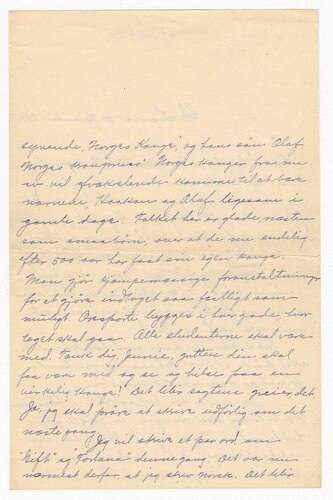 syvende, Norges Konge", og hans sön "Olaf
Norges Kronprins". Norges konger fra nu
av vil avvekslende komme til at bære
navnene Haakon og Olaf ligesom i
gamle dage. Folket her er glade, næsten
som smaabörn, over at de nu endelig
efter 500 aar har faat sin egen konge.
Man gjör kjæmpemæssige foranstaltninger
for at gjöre indtoget saa festligt som
muligt. Ærsporte bygges i hver gade, hvor
toget skal gaa. Alle studenterne skal være
med. Tænk dig, Jennie, gutten din skal
faa være med og se og hilse paa en
virkelig konge! Det blir sagtens greier, det.
Ja, jeg skal pröve at skrive udförlig om det
næste gang.
Jeg vil skrive et par ord om
"Gift" og "Fortuna" denne gang. Det var nu
nærmest derfor, at jeg skrev norsk. Det blir